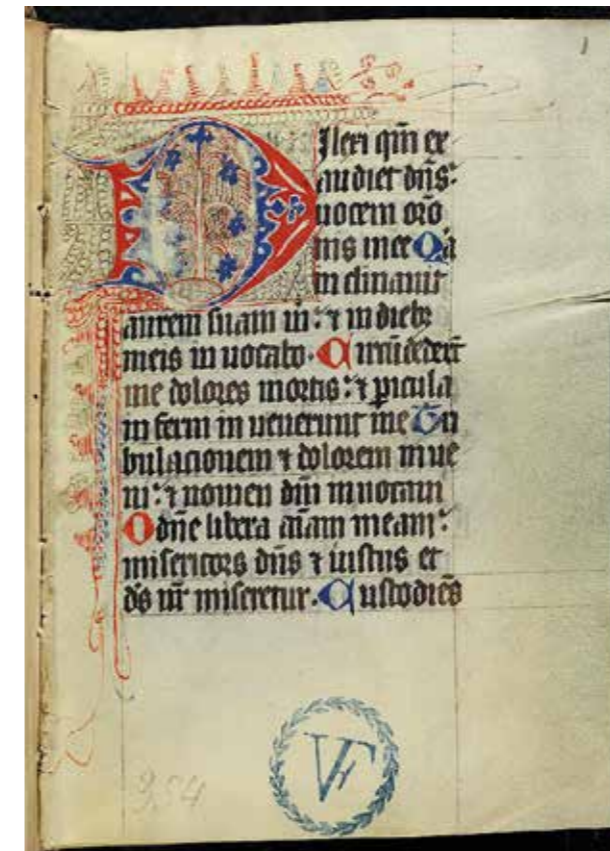 1
DIlexi qm̄ ex
audiet dn̄s:
uocem orō
nis mee Qa
inclinauit
aurem suam m̄: ⁊ in dieb;
meis inuocabo. Circūdederūt
me dolores mortis: ⁊ ꝑicula
inferni inuenerunt me Tri
bulacionem ⁊ dolorem inue
ni: ⁊ nomen dn̄i inuocaui
O dn̄e libera aīam meam:
misericors dn̄s ⁊ iustus et
ds̄ nr̄ miseretur. Custodiēs
VF
954